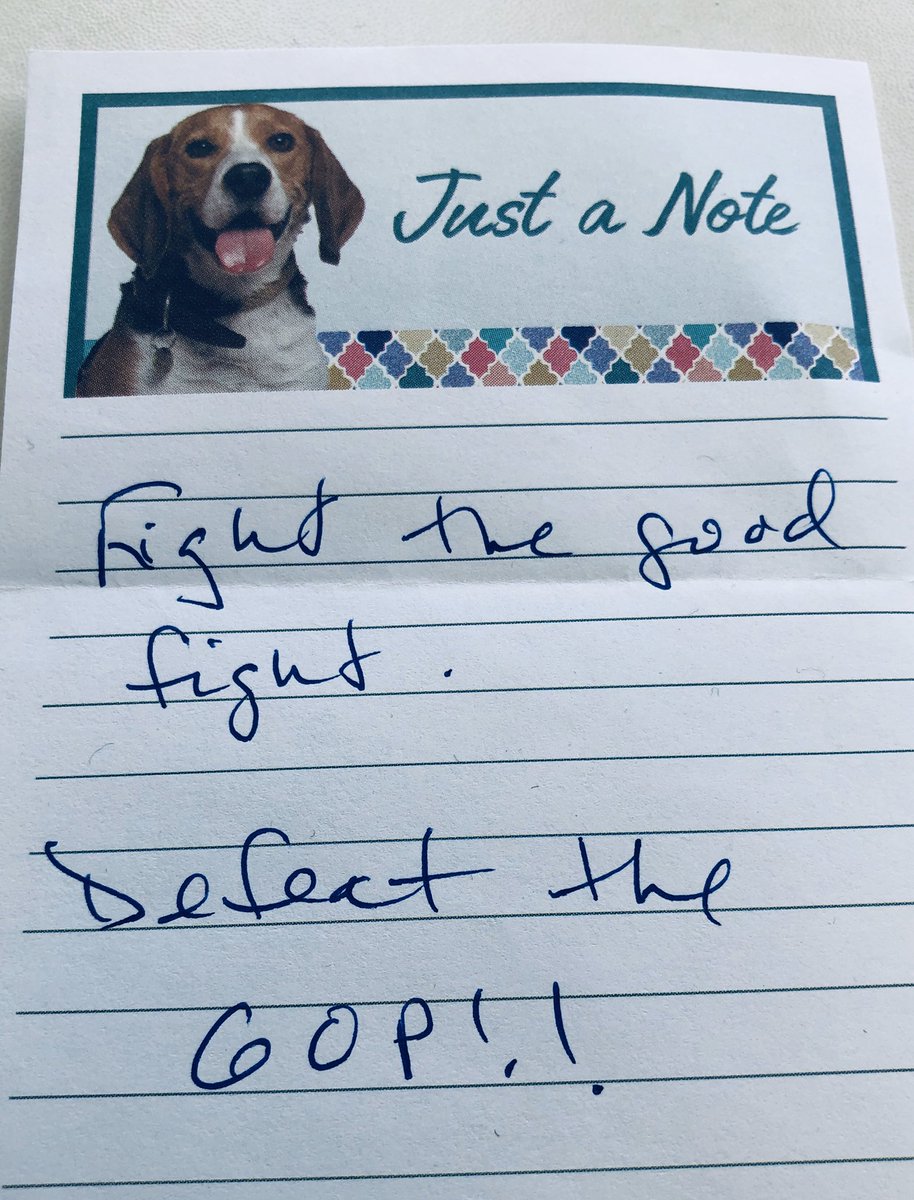 Just a Note
Fight the good
fight.
Defeat the
GOP!!